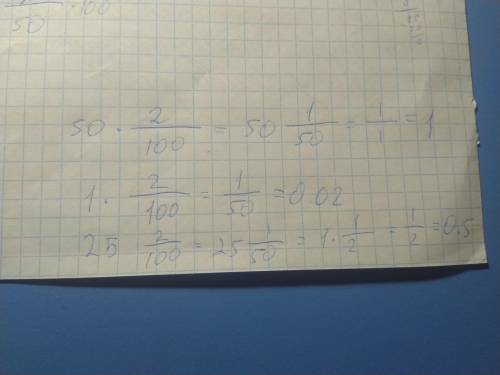 50 · 100
50 · 2/100 = 50 1/50 = 1/1 = 1
1 · 2/100 = 1/50 = 0.02
25 2/100 = 25 1/50 = 1 · 1/2 = 1/2 = 0.5